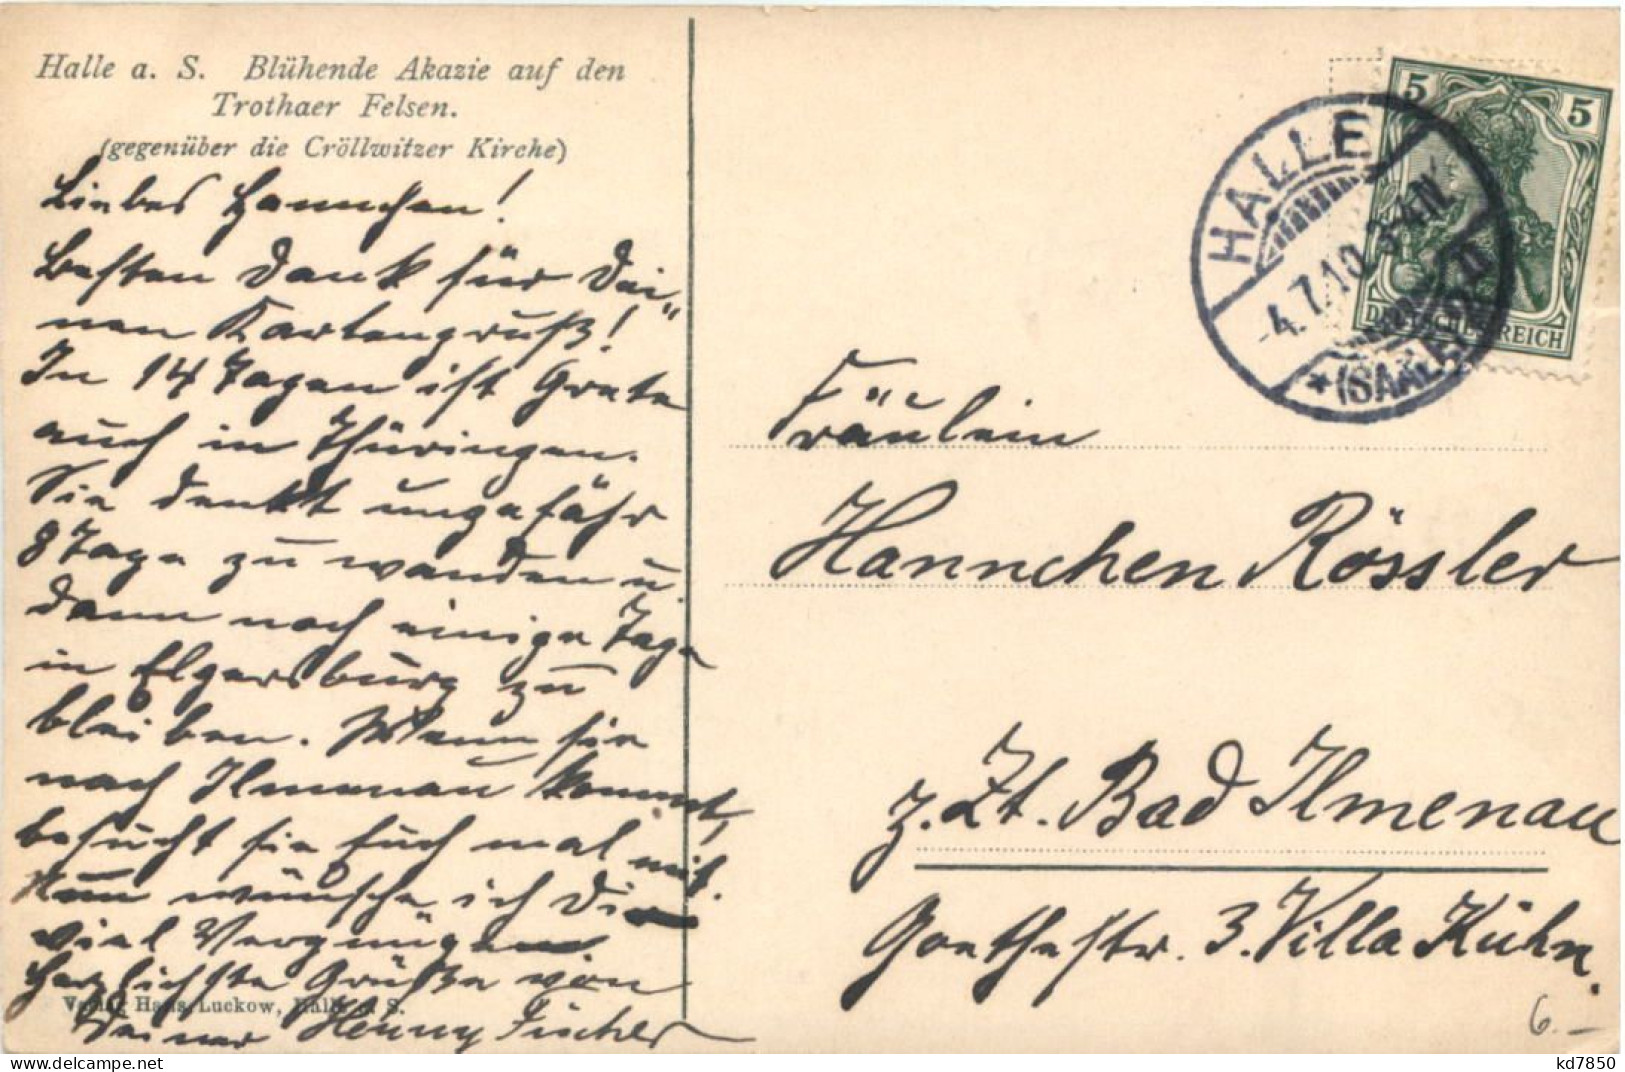 Halle a. S. Blühende Akazie auf den
Trothaer Felsen.
(gegenüber die Cröllwitzer Kirche)
Liebes Hannchen!
Besten Dank für Dei-
nen Kartengruß!
In 14 Tagen ist Grete
auch in Thüringen.
Sie denkt ungefähr
8 Tage zu wandern u.
dann noch einige Tage
in Elgersburg zu
bleiben. Wenn sie
nach Ilmenau kommt,
besucht sie Euch mal mit.
Nun wünsche ich Dir
viel Vergnügen
Herzlichste Grüße von
Verlag Hans Luckow, Halle a. S.
Deiner Henny Fischer
5 5
DEUTSCHES REICH
HALLE
-4.7.10. 3-4 N.
* (SAALE) 2
Fräulein
Hannchen Rössler
z. Zt. Bad Ilmenau
Goethestr. 3. Villa Kühn.
6.-
kd7850